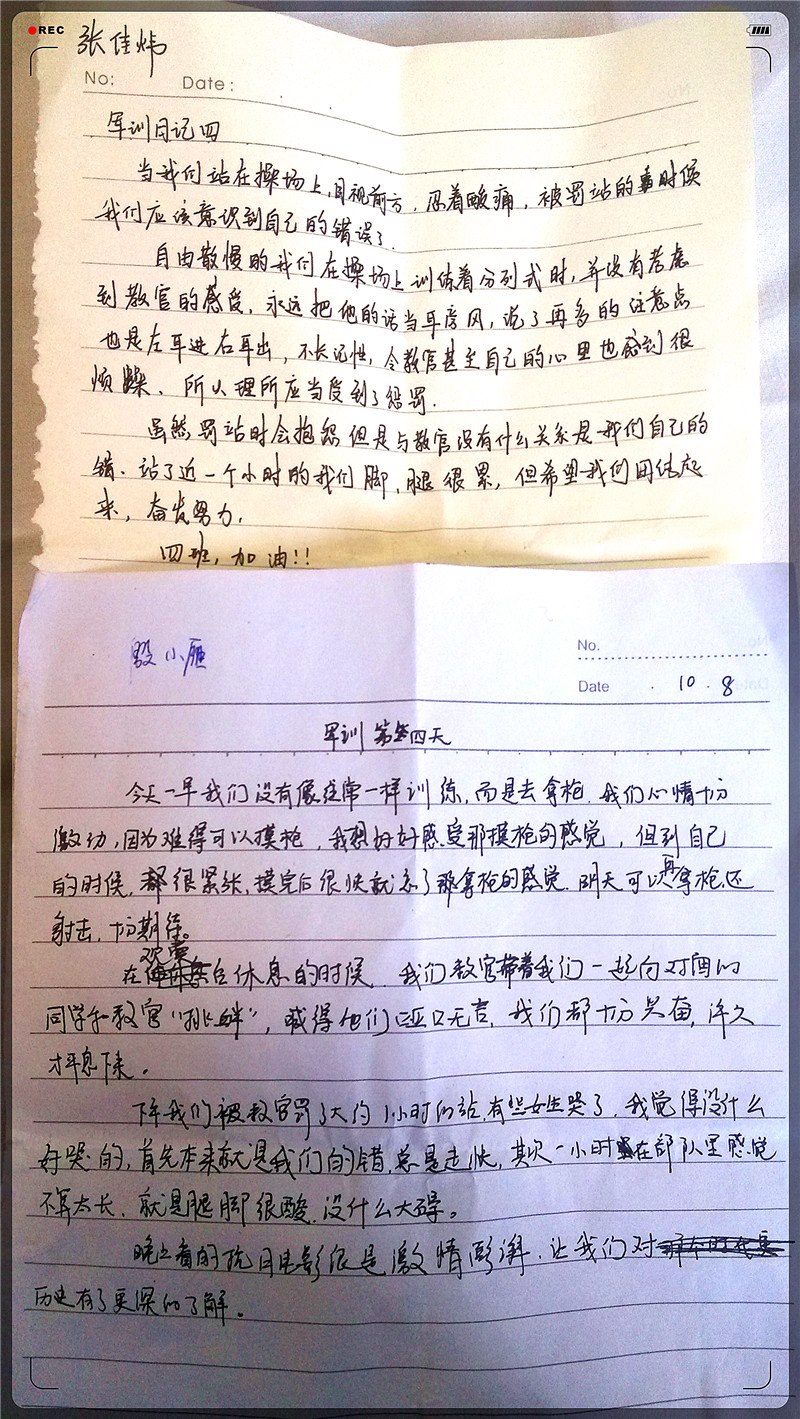 REC
张佳炜
No:
Date:
军训日记四
当我们站在操场上,目视前方,忍着酸痛,被罚站的时候
我们应该意识到自己的错误了.
自由散慢的我们在操场上训练着分列式时,并没有考虑
到教官的感受,永远把他的话当耳旁风,说了再多的注意点
也是左耳进右耳出,不长记性,令教官甚至自己的心里也感到很
烦躁、所以理所应当受到了惩罚.
虽然罚站时会抱怨但是与教官没有什么关系是我们自己的
错.站了近一个小时的我们脚,腿很累,但希望我们团结起
来,奋发努力.
四班,加油!!
殷小雁
No.
Date 10.8
军训第四天
今天一早我们没有像往常一样训练,而是去拿枪.我们心情十分
激动,因为难得可以摸枪,我想好好感受那摸枪的感觉,但到自己
的时候,都很紧张,摸完后很快就忘了那拿枪的感觉.明天可以再拿枪还
射击,十分期待。
在观赏台休息的时候,我们教官带着我们一起向对面的
同学和教官“挑衅”,喊得他们哑口无言,我们都十分兴奋,许久
才平息下来。
下午我们被教官罚了大约1小时的站,有些女生哭了,我觉得没什么
好哭的,首先本来就是我们的错,总是走快,其次一小时在部队里感觉
不算太长,就是腿脚很酸,没什么大碍。
晚上看的抗日电影很是激情澎湃.让我们对
历史有了更深的了解。